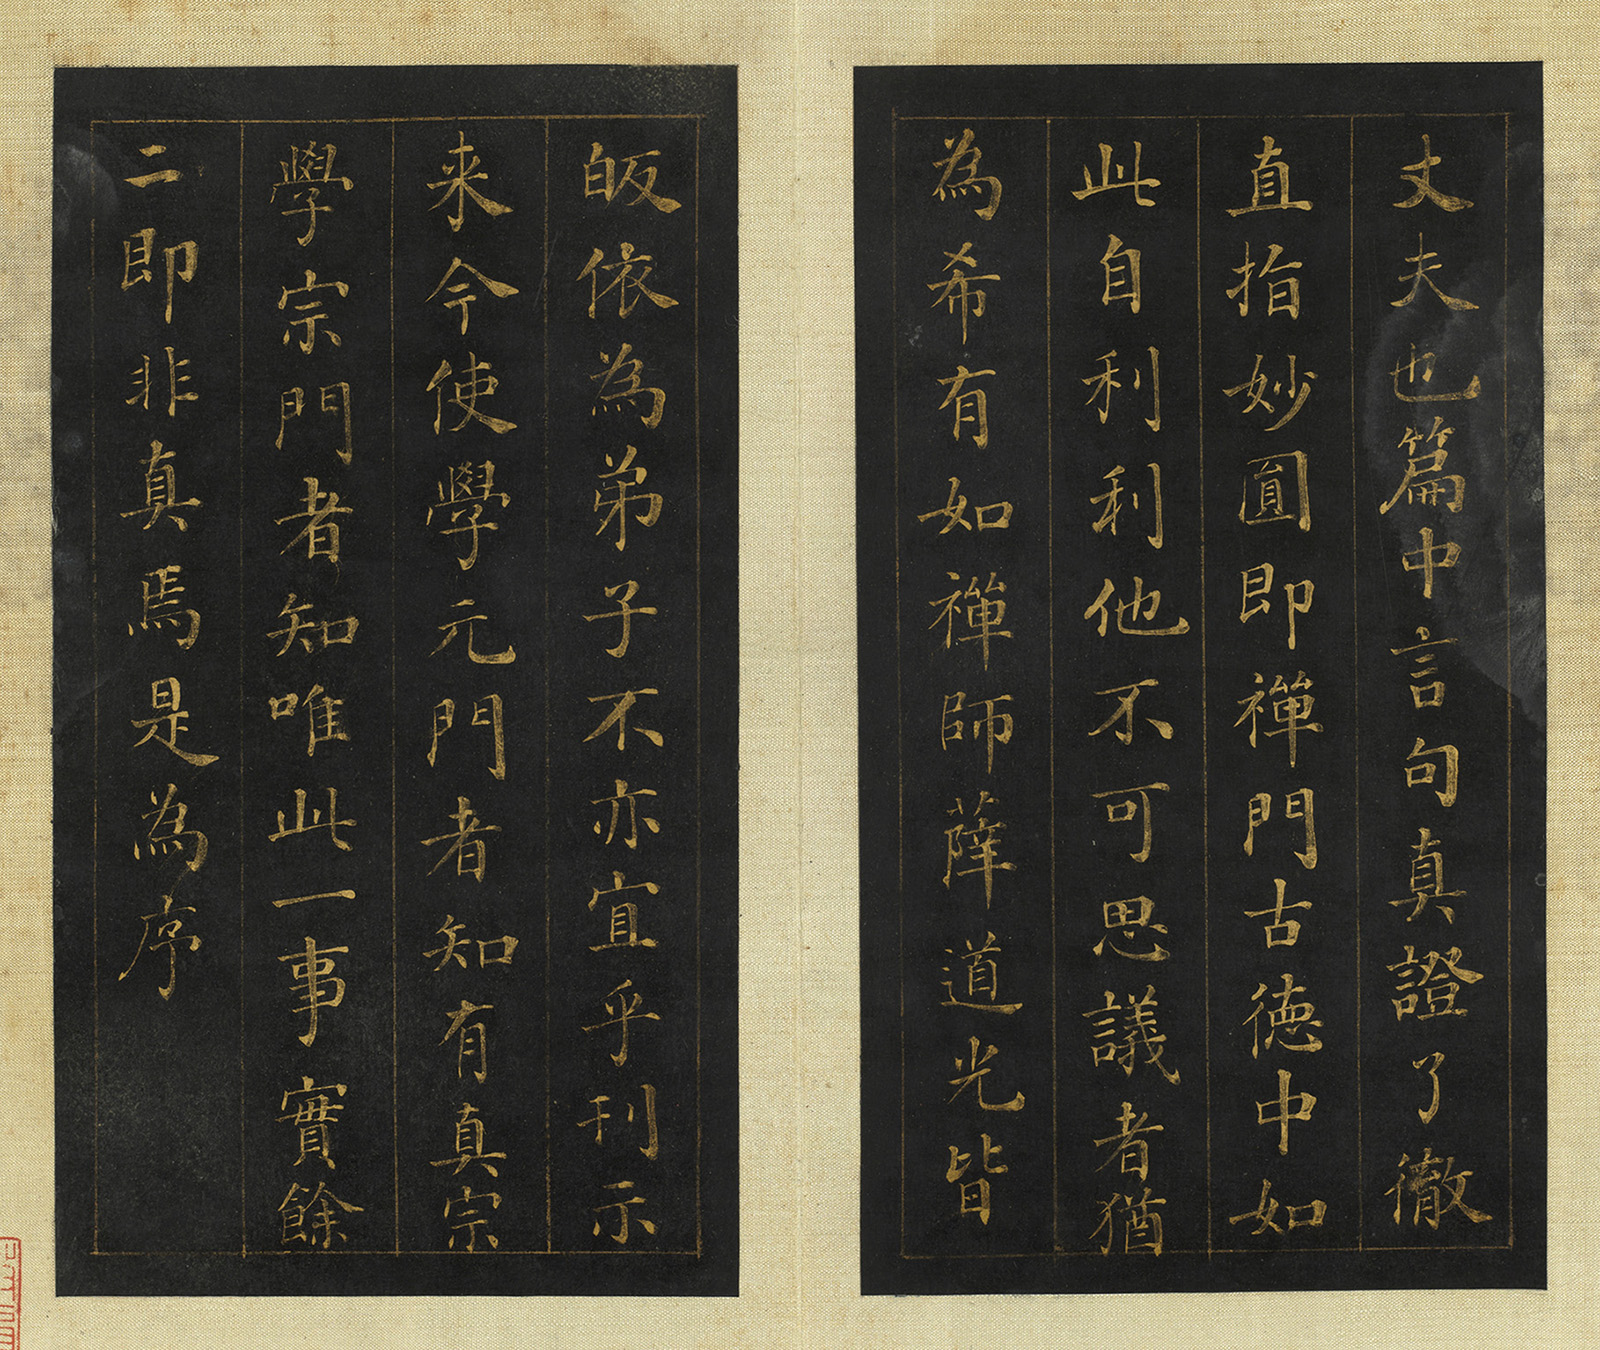 丈夫也篇中言句真證了徹
直指妙圓即禪門古德中如
此自利利他不可思議者猶
為希有如禪師薛道光皆
皈依為弟子不亦宜乎刊示
来今使學元門者知有真宗
學宗門者知唯此一事實餘
二即非真焉是為序